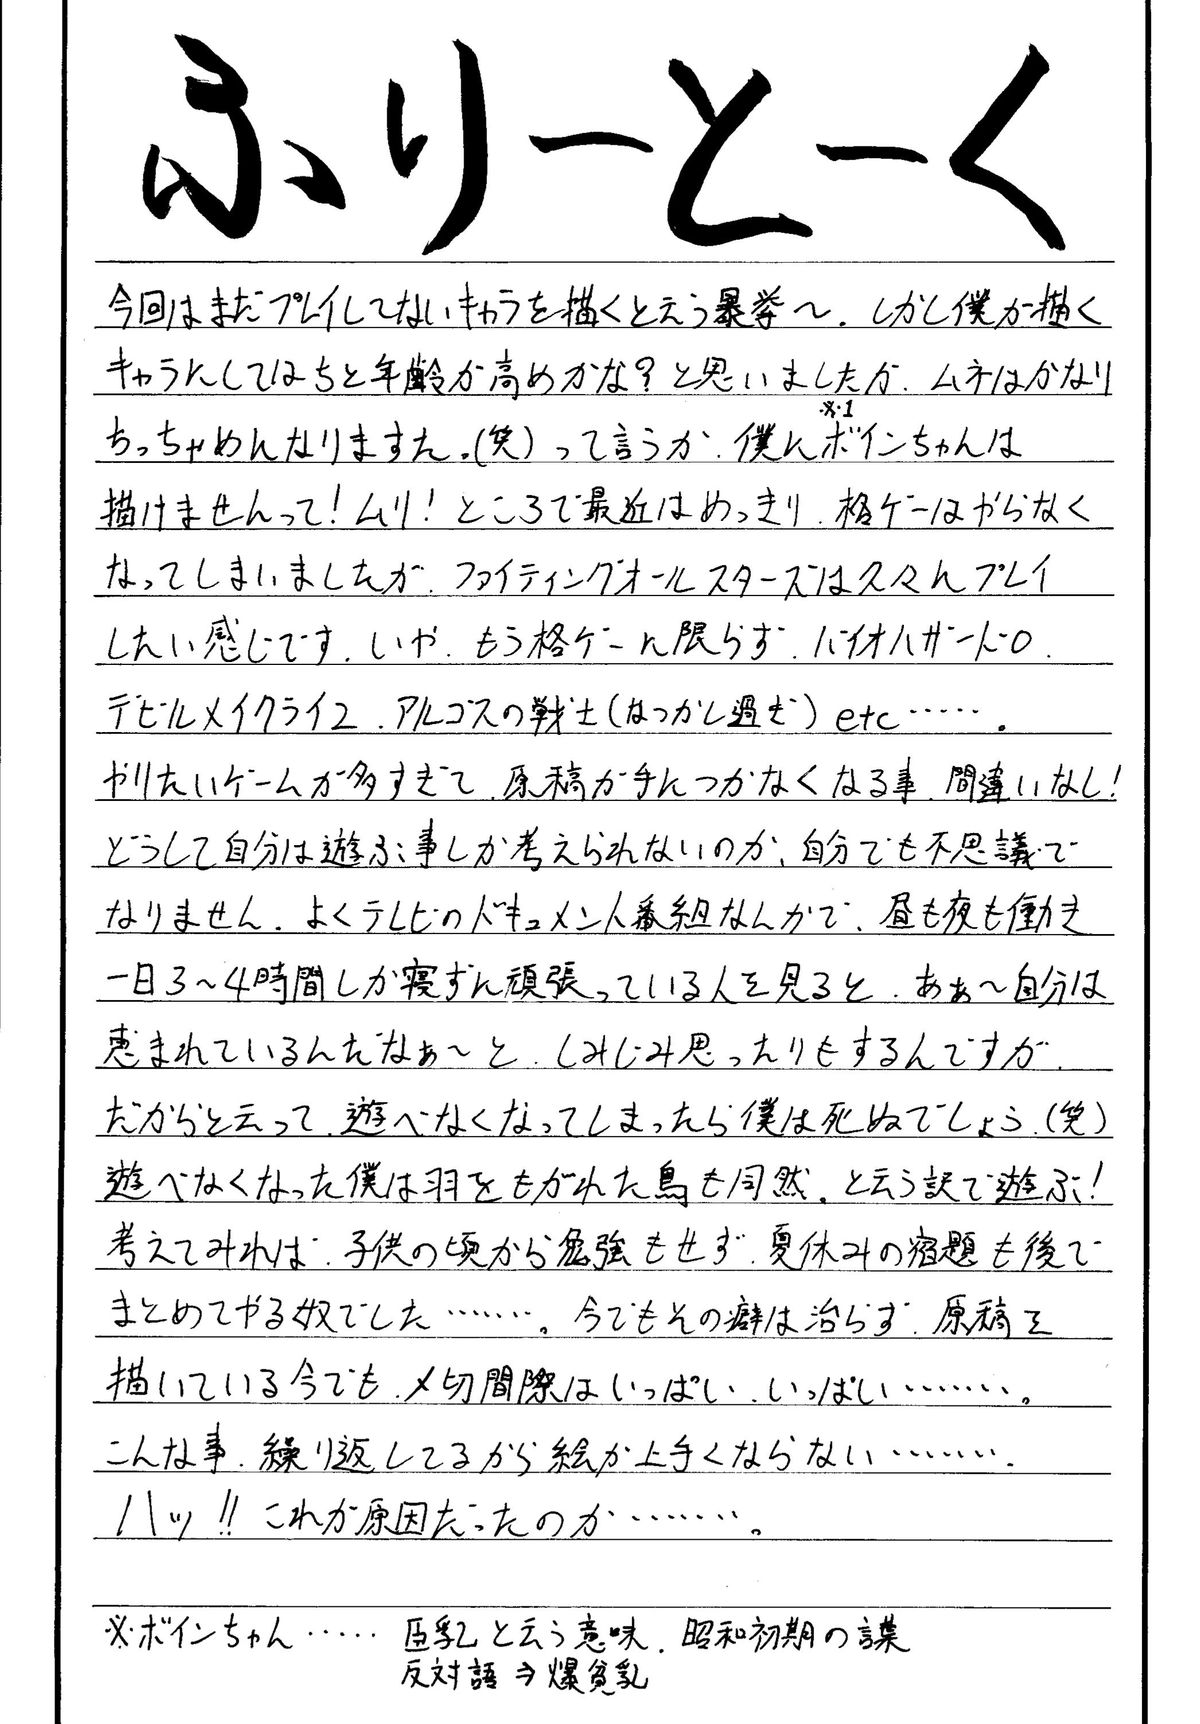 ふりーとーく
今回はまだプレイしてないキャラを描くと云う暴挙〜。しかし僕が描く
キャラにしてはちと年齢が高めかな？と思いましたが、ムネはかなり
※1
ちっちゃめんなりますた。(笑) って言うか、僕にボインちゃんは
描けませんって！ムリ！ところで最近はめっきり、格ゲーはやらなく
なってしまいましたが、ファイティングオールスターズは久々にプレイ
したい感じです。いや、もう格ゲーに限らず、バイオハザード0、
デビルメイクライ2、アルゴスの戦士(なつかし過ぎ) etc……。
やりたいゲームが多すぎて、原稿が手につかなくなる事、間違いなし！
どうして自分は遊ぶ事しか考えられないのか、自分でも不思議で
なりません。よくテレビのドキュメント番組なんかで、昼も夜も働き
一日3〜4時間しか寝ずに頑張っている人を見ると、あぁ〜自分は
恵まれているんだなぁ〜と、しみじみ思ったりもするんですが、
だからと云って、遊べなくなってしまったら僕は死ぬでしょう。(笑)
遊べなくなった僕は羽をもがれた鳥も同然。と云う訳で遊ぶ！
考えてみれば、子供の頃から勉強もせず、夏休みの宿題も後で
まとめてやる奴でした………。今でもその癖は治らず、原稿を
描いている今でも、〆切間際はいっぱい、いっぱい………。
こんな事、繰り返してるから絵が上手くならない………。
ハッ!! これが原因だったのか………。
※ボインちゃん…… 巨乳と云う意味。昭和初期の言葉
反対語⇒爆貧乳